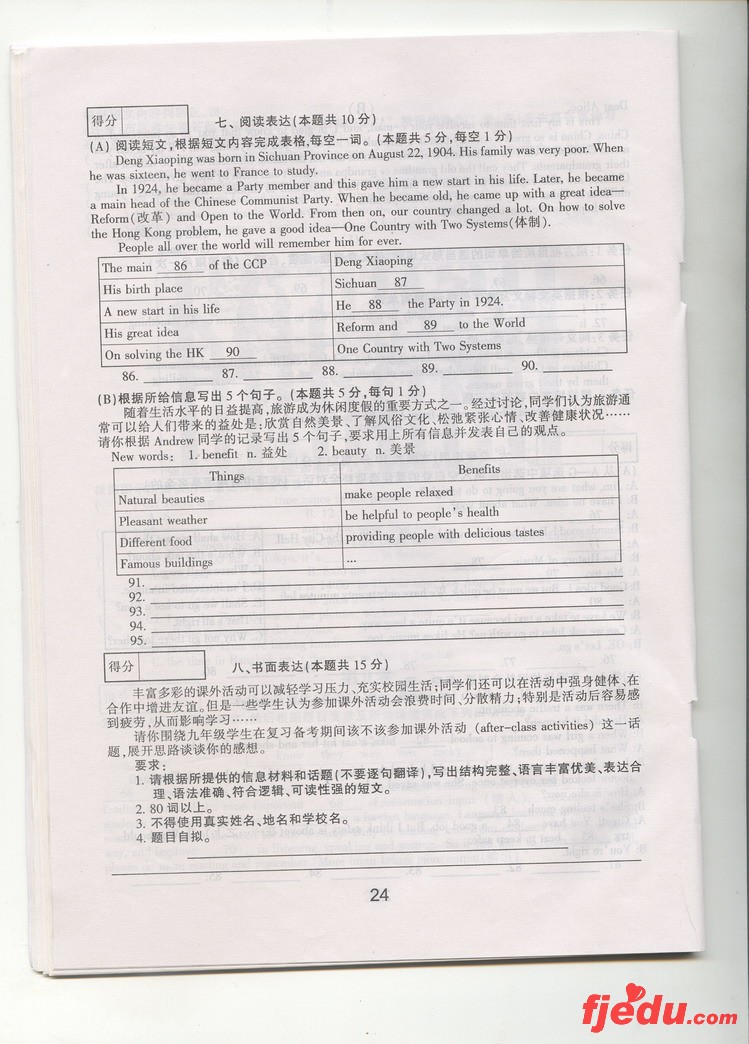 得分
七、阅读表达(本题共10分)
(A) 阅读短文,根据短文内容完成表格,每空一词。(本题共5分,每空1分)
Deng Xiaoping was born in Sichuan Province on August 22, 1904. His family was very poor. When
he was sixteen, he went to France to study.
In 1924, he became a Party member and this gave him a new start in his life. Later, he became
a main head of the Chinese Communist Party. When he became old, he came up with a great idea—
Reform(改革) and Open to the World. From then on, our country changed a lot. On how to solve
the Hong Kong problem, he gave a good idea—One Country with Two Systems(体制).
People all over the world will remember him for ever.
The main 86 of the CCP Deng Xiaoping
His birth place Sichuan 87
A new start in his life He 88 the Party in 1924.
His great idea Reform and 89 to the World
On solving the HK 90 One Country with Two Systems
86. 87. 88. 89. 90.
(B)根据所给信息写出5个句子。(本题共5分,每句1分)
随着生活水平的日益提高,旅游成为休闲度假的重要方式之一。经过讨论,同学们认为旅游通
常可以给人们带来的益处是:欣赏自然美景、了解风俗文化、松弛紧张心情、改善健康状况……
请你根据 Andrew 同学的记录写出5个句子,要求用上所有信息并发表自己的观点。
New words: 1. benefit n. 益处 2. beauty n. 美景
Things Benefits
Natural beauties make people relaxed
Pleasant weather be helpful to people's health
Different food providing people with delicious tastes
Famous buildings ...
91.
92.
93.
94.
95.
得分
八、书面表达(本题共15分)
丰富多彩的课外活动可以减轻学习压力、充实校园生活;同学们还可以在活动中强身健体、在
合作中增进友谊。但是一些学生认为参加课外活动会浪费时间、分散精力;特别是活动后容易感
到疲劳,从而影响学习……
请你围绕九年级学生在复习备考期间该不该参加课外活动 (after-class activities) 这一话
题,展开思路谈谈你的感想。
要求:
1. 请根据所提供的信息材料和话题(不要逐句翻译),写出结构完整、语言丰富优美、表达合
理、语法准确、符合逻辑、可读性强的短文。
2. 80词以上。
3. 不得使用真实姓名、地名和学校名。
4. 题目自拟。
24
fjedu.com